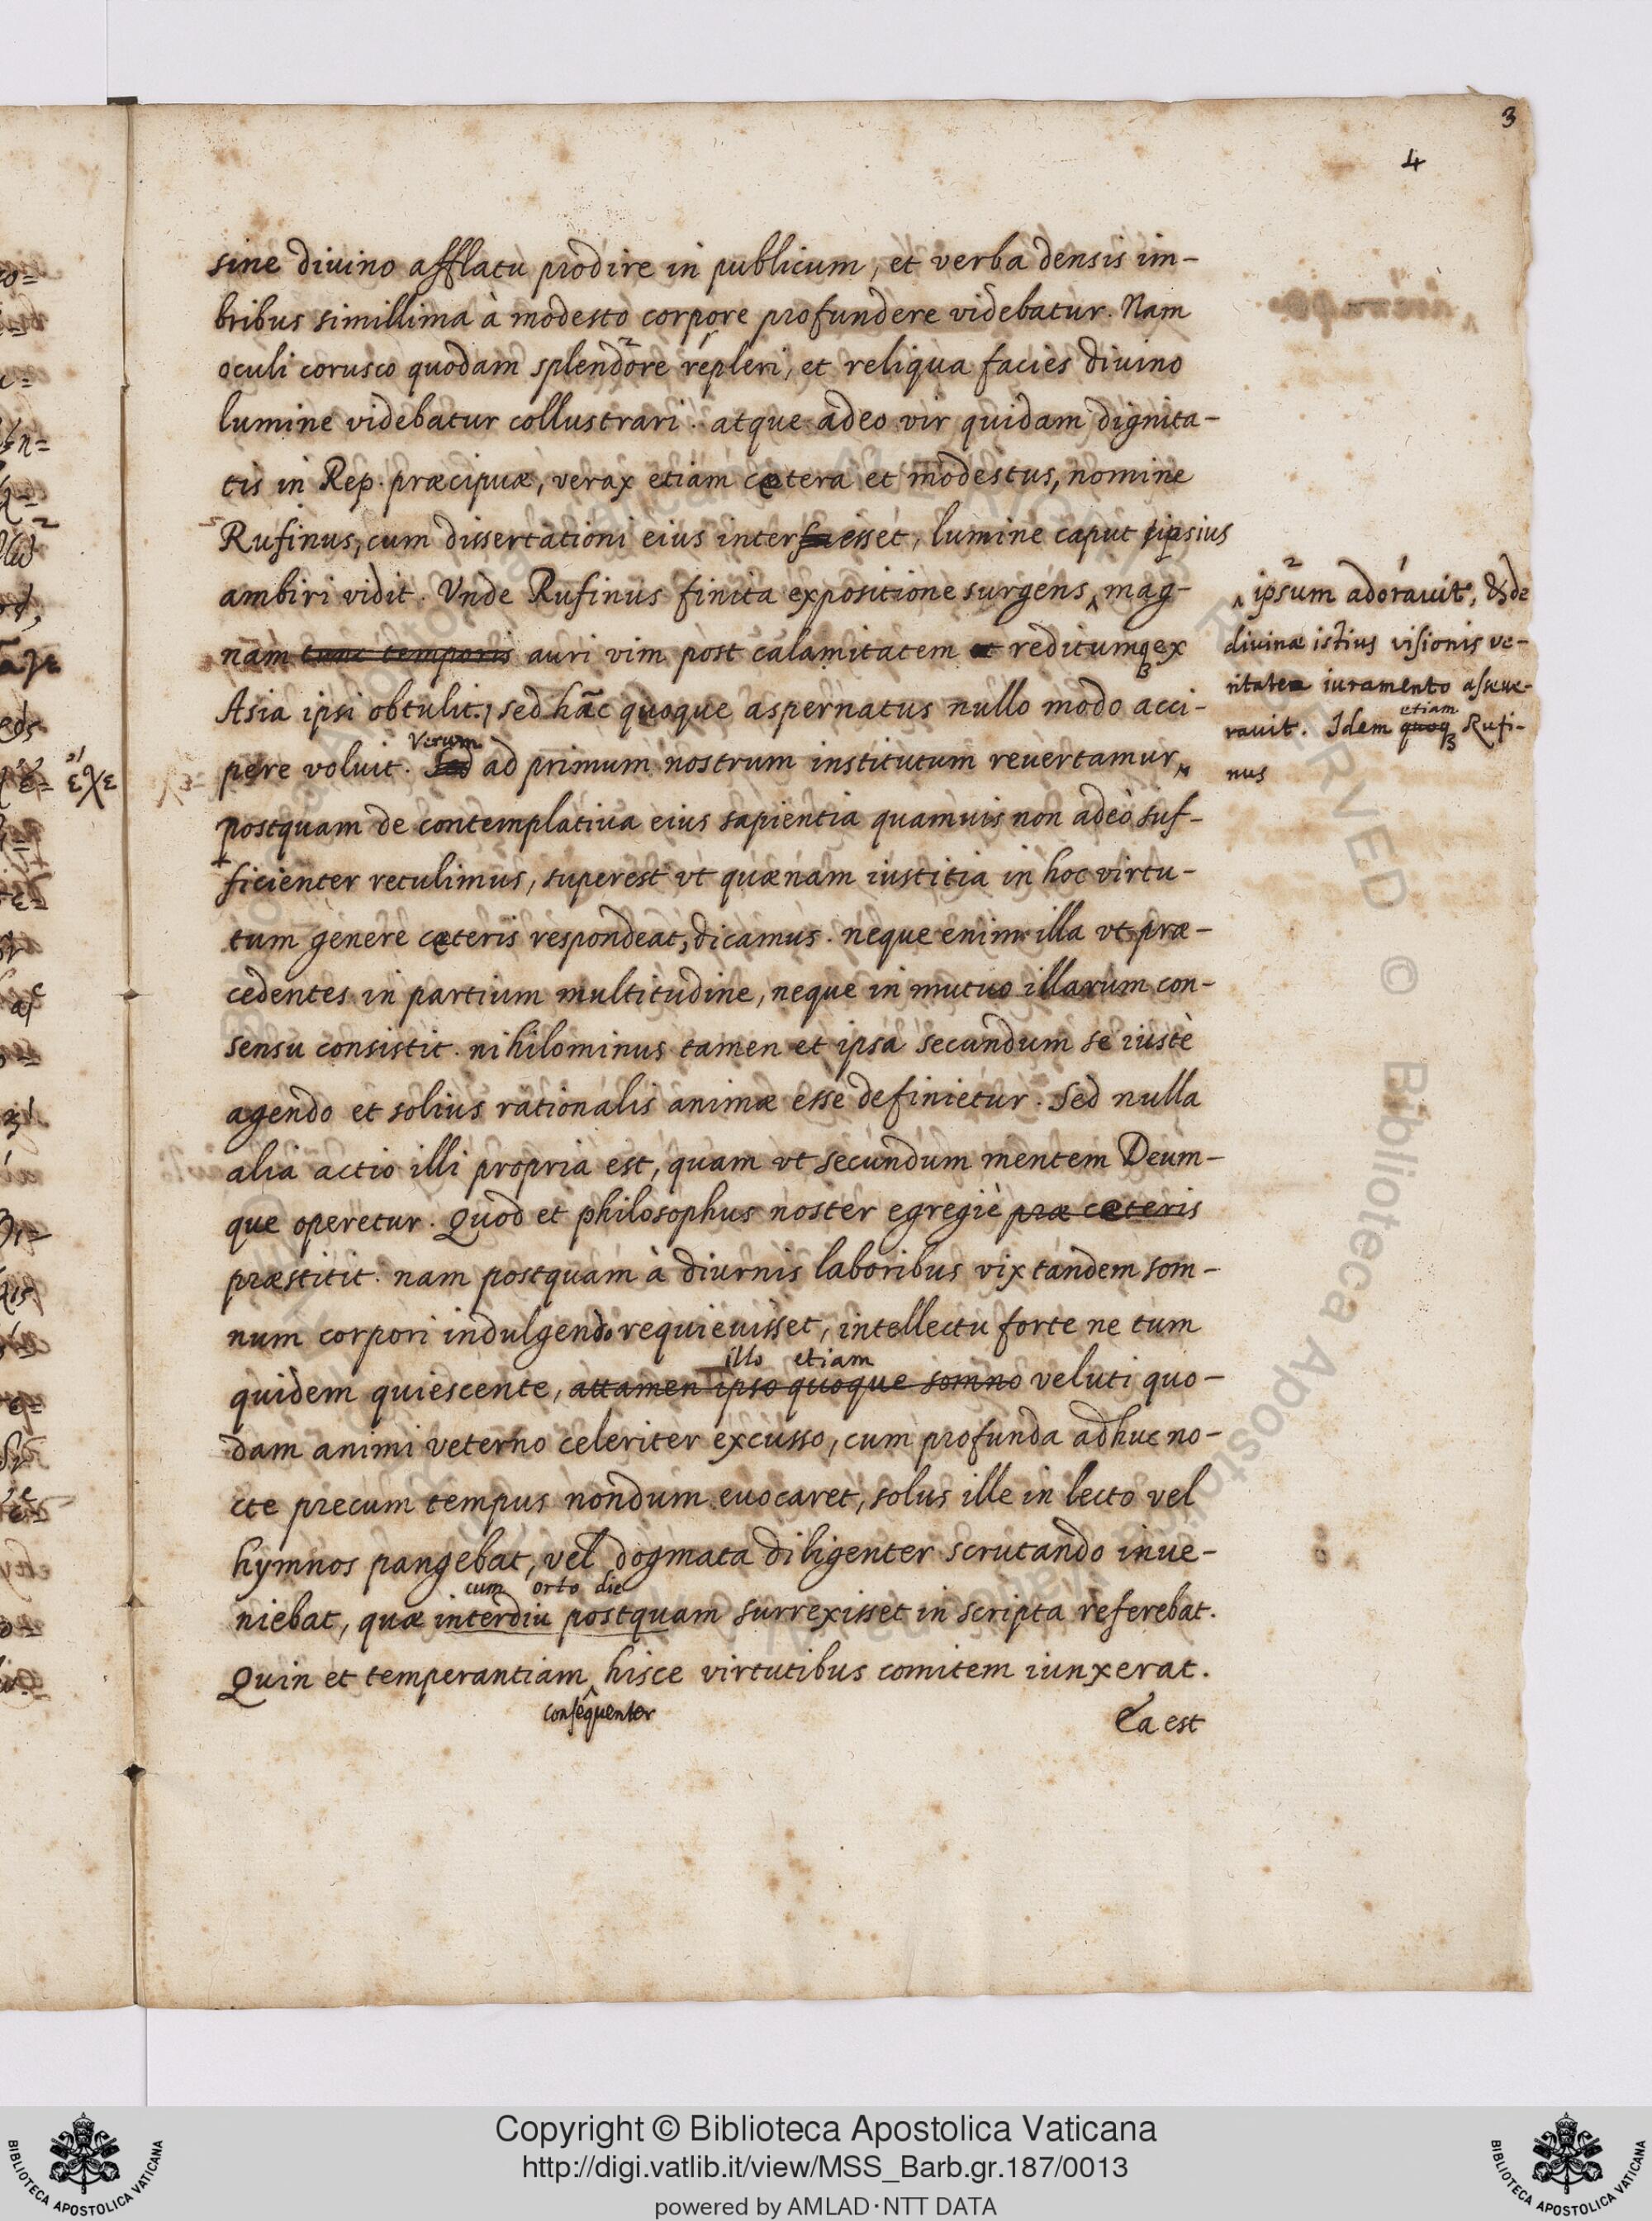 3
4
sine diuino afflatu prodire in publicum, et verba densis im-
bribus simillima à modesto corpore profundere videbatur. Nam
oculi corusco quodam splendore repleri, et reliqua facies diuino
lumine videbatur collustrari. atque adeo vir quidam dignita-
tis in Rep. præcipuæ, verax etiam cętera et modestus, nomine
Rufinus, cum dissertationi eius interesset, lumine caput ipsius
ambiri vidit. Vnde Rufinus finita expositione surgens ^ mag-
nam tunc temporis auri vim post calamitatem et reditumqꝫ ex
Asia ipsi obtulit. sed hãc quoque aspernatus nullo modo acci-
Verum
pere voluit. Sed ad primum nostrum institutum reuertamur,
postquam de contemplatiua eius sapientia quamuis non adeò suf-
ficienter retulimus, superest vt quænam iustitia in hoc virtu-
tum genere cęteris respondeat, dicamus. neque enim illa vt præ-
cedentes in partium multitudine, neque in mutuo illarum con-
sensu consistit. nihilominus tamen et ipsa secundum se iustè
agendo et solius rationalis animæ esse definietur. Sed nulla
alia actio illi propria est, quam vt secundum mentem Deum-
que operetur. Quod et philosophus noster egregiè præ cęteris
præstitit. nam postquam à diurnis laboribus vix tandem som-
num corpori indulgendo requieuisset, intellectu forte ne tum
illo etiam
quidem quiescente, attamen ipso quoque somno veluti quo-
dam animi veterno celeriter excusso, cum profunda adhuc no-
cte precum tempus nondum euocaret, solus ille in lecto vel
hymnos pangebat, vel dogmata diligenter scrutando inue-
cum orto die
niebat, quæ interdiu postquam surrexisset in scripta referebat.
Quin et temperantiam ^ hisce virtutibus comitem iunxerat.
consequenter
Ea est
^ ipsum adorauit, & de
2 1
diuinæ istius visionis ve-
ritate iuramento asseue-
etiam
rauit. Idem quoqꝫ Rufi-
nus
Copyright © Biblioteca Apostolica Vaticana
http://digi.vatlib.it/view/MSS_Barb.gr.187/0013
powered by AMLAD·NTT DATA
BIBLIOTECA APOSTOLICA VATICANA
BIBLIOTECA APOSTOLICA VATICANA